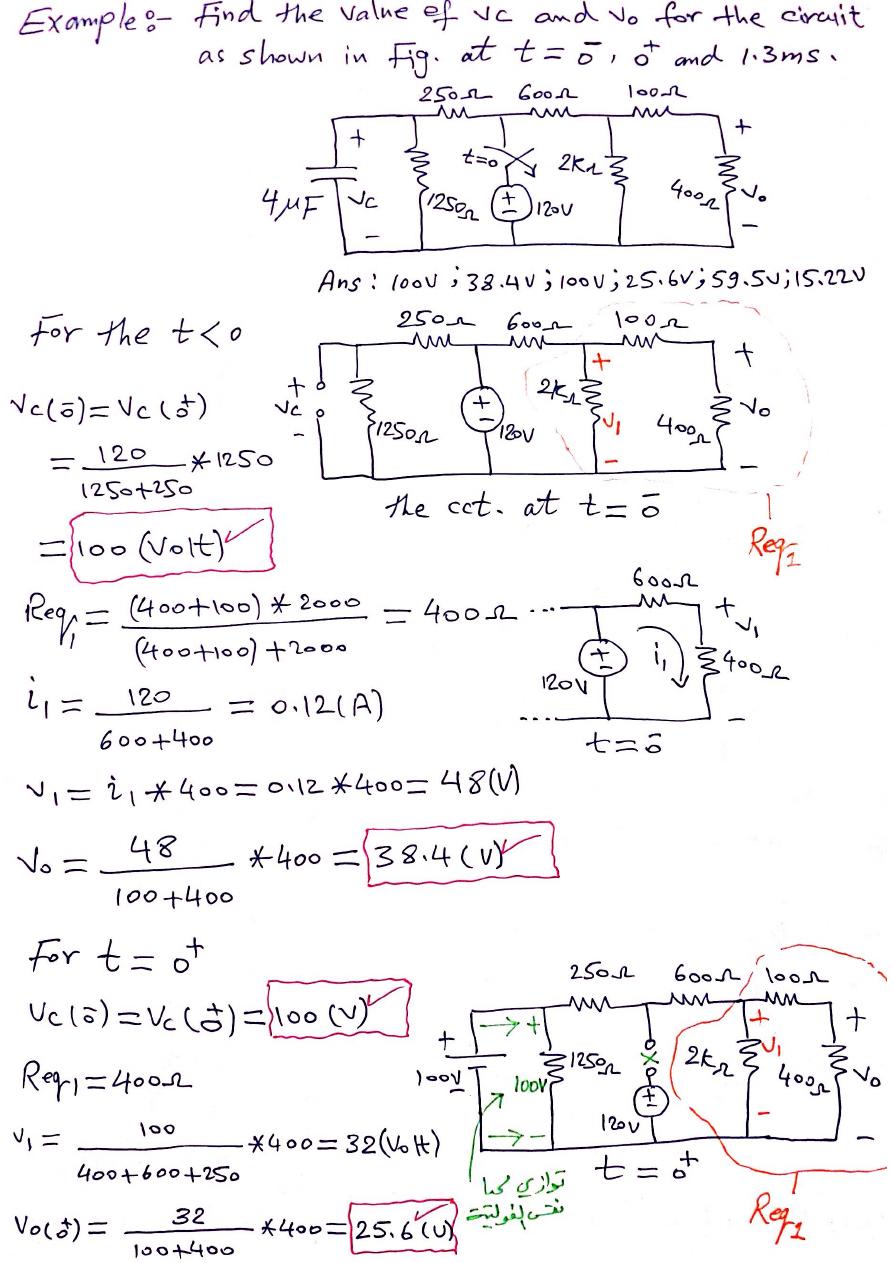 Example:- Find the value of vc and vo for the circuit
as shown in Fig. at t=0̄, 0⁺ and 1.3ms.
250Ω 600Ω 100Ω
+ t=0 2KΩ +
4μF vc 1250Ω + - 120V 400Ω vo
- -
Ans: 100V; 38.4V; 100V; 25.6V; 59.5V; 15.22V
For the t<0
250Ω 600Ω 100Ω
+ vc - 1250Ω + - 120V 2KΩ + v₁ - 400Ω + vo -
Vc(0̄)=Vc(0⁺)
= 120/(1250+250) * 1250
the cct. at t=0̄
= 100 (Volt) ✓
Req₁
Req₁ = (400+100)*2000/((400+100)+2000) = 400Ω
600Ω
120V + - i₁ 400Ω + v₁ -
t=0̄
i₁ = 120/(600+400) = 0.12(A)
v₁ = i₁*400 = 0.12*400 = 48(V)
Vo = 48/(100+400) *400 = 38.4(V) ✓
For t=0⁺
Vc(0̄)=Vc(0⁺)=100(V) ✓
250Ω 600Ω 100Ω
+ 100V - → + 100V → - 1250Ω x + - 120V 2KΩ + v₁ - 400Ω + vo -
Req₁=400Ω
v₁ = 100/(400+600+250) *400 = 32(Volt)
t=0⁺
توازي
نفس الفولتية
Req₁
Vo(0⁺) = 32/(100+400) *400 = 25.6(V) ✓